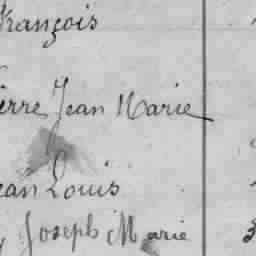 François
ierre Jean Marie
ean Louis
Joseph Marie